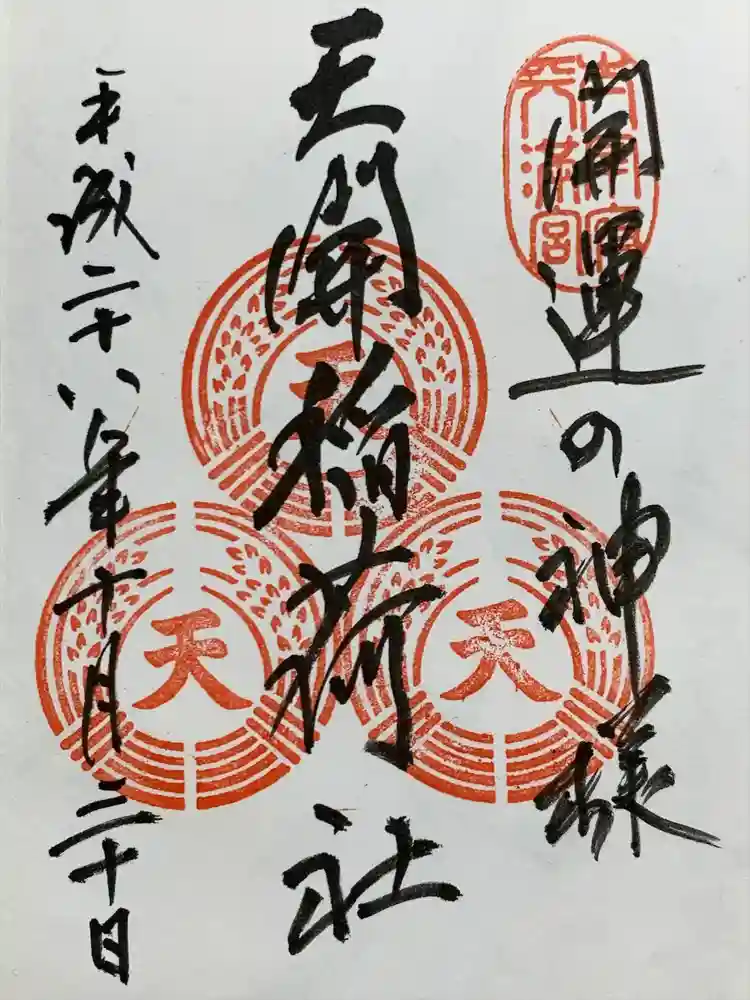 開運の神様
天開稲荷社
平成二十八年十月二十日
天満宮
天
天
天